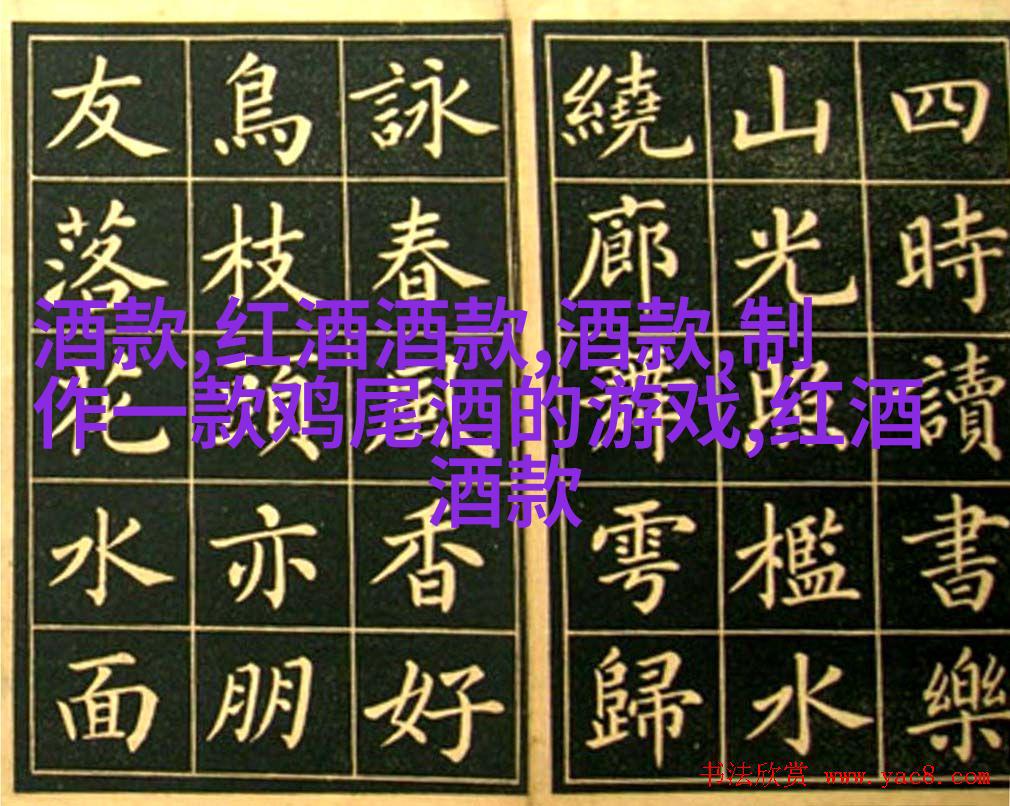 四時讀書樂
山光照檻水
繞廊舞雩歸
詠春風香好
鳥枝頭亦朋
友落花水面
酒款,红酒酒款,酒款,制
作一款鸡尾酒的游戏,红酒
酒款
书法欣赏 www.yac8.com